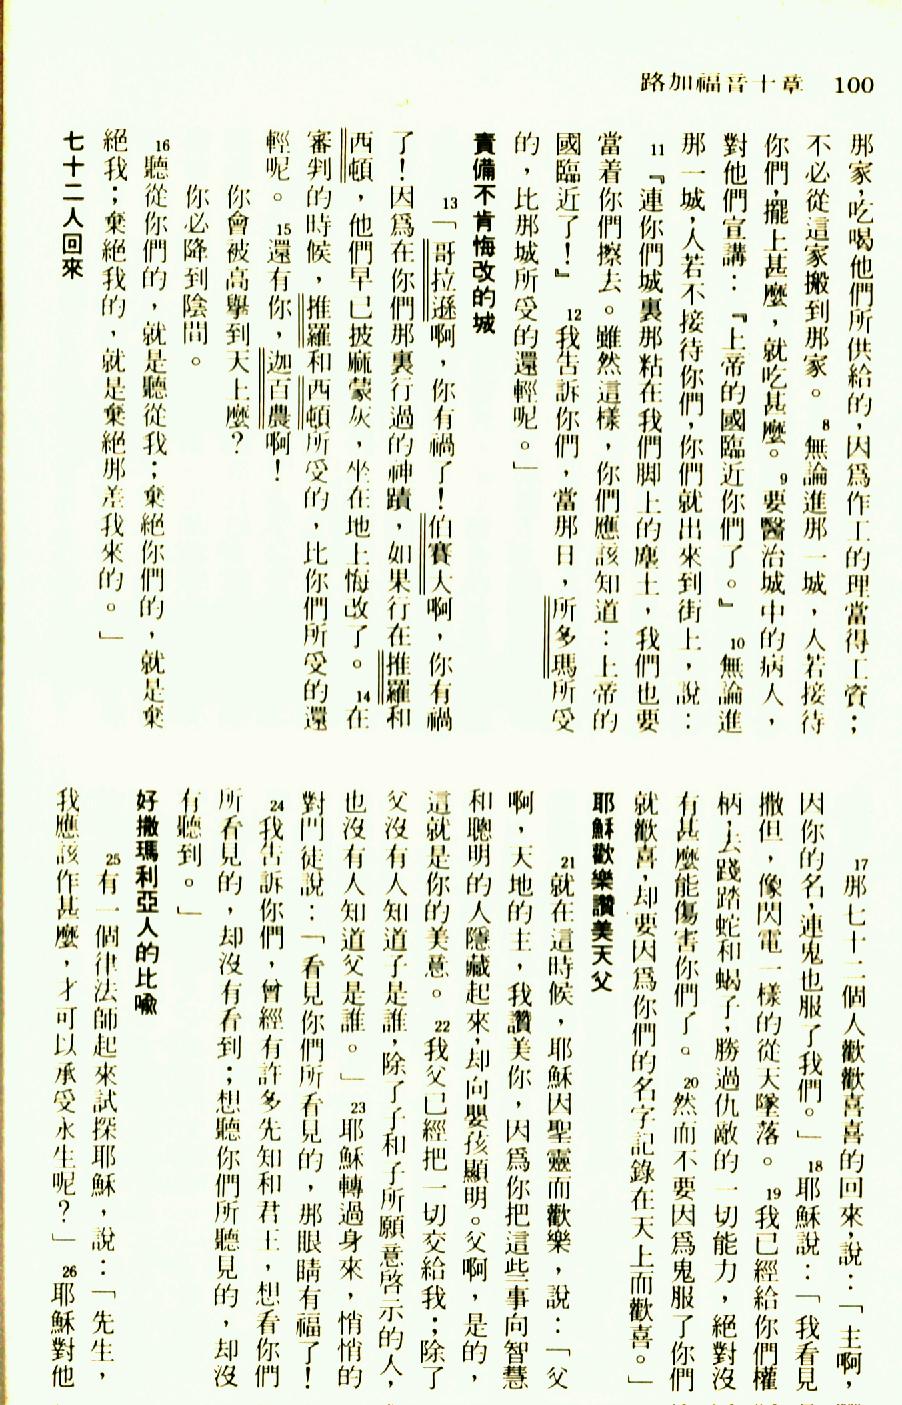 路加福音十章　100
那家，吃喝他們所供給的，因爲作工的理當得工資；
不必從這家搬到那家。8無論進那一城，人若接待
你們，擺上甚麼，就吃甚麼。9要醫治城中的病人，
對他們宣講：『上帝的國臨近你們了。』10無論進
那一城，人若不接待你們，你們就出來到街上，說：
11『連你們城裏那粘在我們脚上的塵土，我們也要
當着你們擦去。雖然這樣，你們應該知道：上帝的
國臨近了！』12我告訴你們，當那日，所多瑪所受
的，比那城所受的還輕呢。」
責備不肯悔改的城
13「哥拉遜啊，你有禍了！伯賽大啊，你有禍
了！因爲在你們那裏行過的神蹟，如果行在推羅和
西頓，他們早已披麻蒙灰，坐在地上悔改了。14在
審判的時候，推羅和西頓所受的，比你們所受的還
輕呢。15還有你，迦百農啊！
你會被高舉到天上麼？
你必降到陰間。
16聽從你們的，就是聽從我；棄絕你們的，就是棄
絕我；棄絕我的，就是棄絕那差我來的。」
七十二人回來
17那七十二個人歡歡喜喜的回來，說：「主啊，
因你的名，連鬼也服了我們。」18耶穌說：「我看見
撒但，像閃電一樣的從天墜落。19我已經給你們權
柄，去踐踏蛇和蝎子，勝過仇敵的一切能力，絕對沒
有甚麼能傷害你們了。20然而不要因爲鬼服了你們
就歡喜，却要因爲你們的名字記錄在天上而歡喜。」
耶穌歡樂讚美天父
21就在這時候，耶穌因聖靈而歡樂，說：「父
啊，天地的主，我讚美你，因爲你把這些事向智慧
和聰明的人隱藏起來，却向嬰孩顯明。父啊，是的，
這就是你的美意。22我父已經把一切交給我；除了
父沒有人知道子是誰，除了子和子所願意啓示的人，
也沒有人知道父是誰。」23耶穌轉過身來，悄悄的
對門徒說：「看見你們所看見的，那眼睛有福了！
24我告訴你們，曾經有許多先知和君王，想看你們
所看見的，却沒有看到；想聽你們所聽見的，却沒
有聽到。」
好撒瑪利亞人的比喻
25有一個律法師起來試探耶穌，說：「先生，
我應該作甚麼，才可以承受永生呢？」26耶穌對他